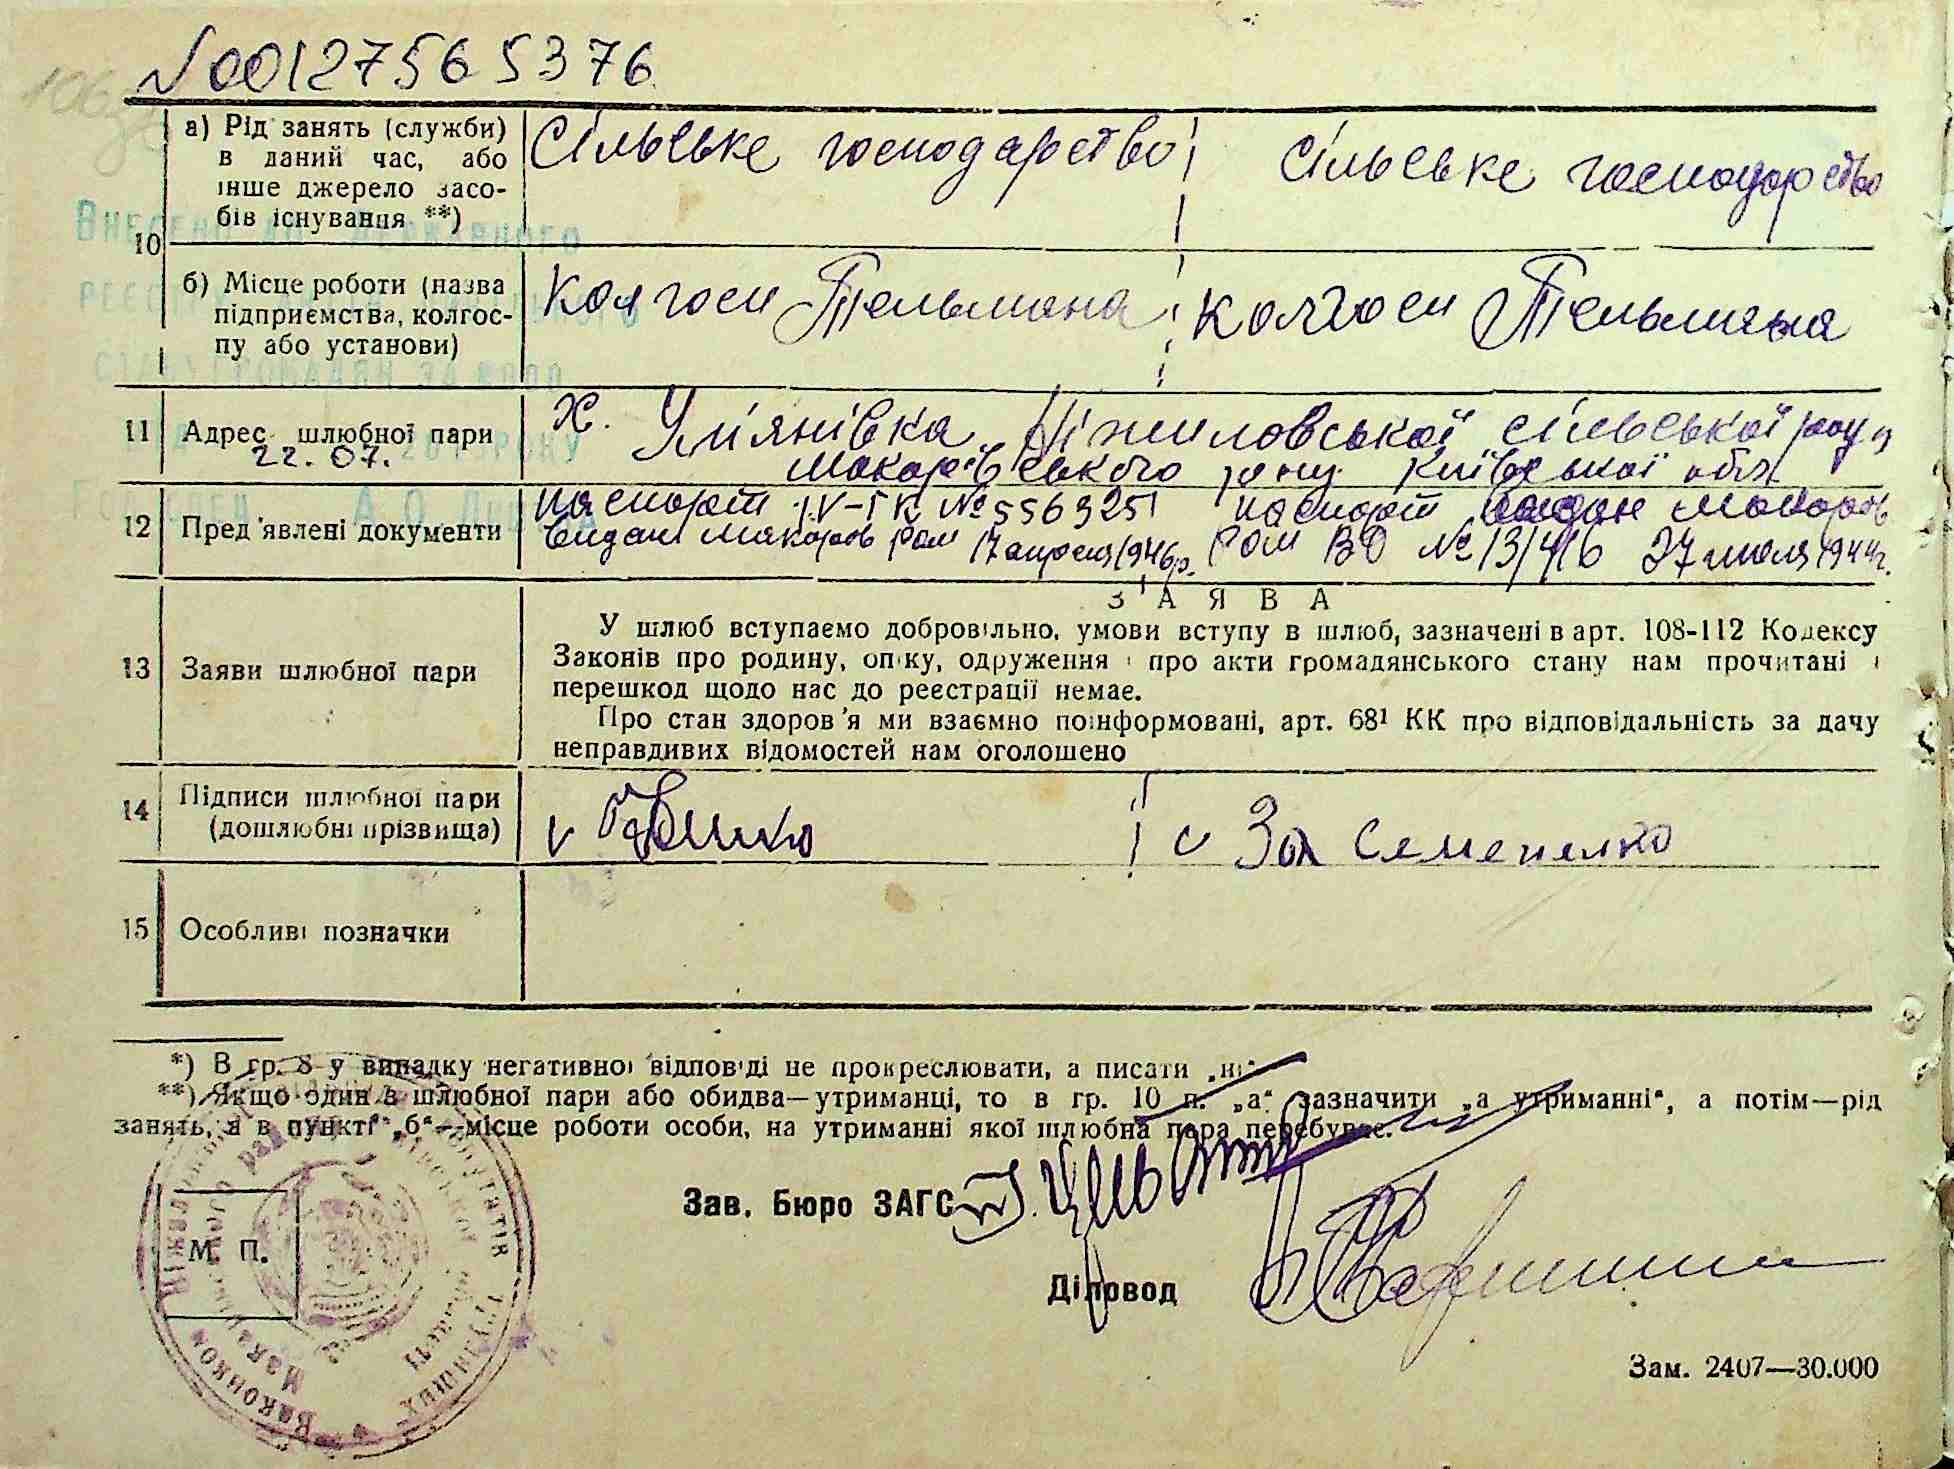 №00127565376
106
10
а) Рід занять (служби) в даний час, або інше джерело засобів існування **)
Сільське господарство
Сільське господарство
б) Місце роботи (назва підприємства, колгоспу або установи)
Колгосп Тельмана
Колгосп Тельмана
Внесено до Державного
реєстру
стану громадян за №00
22.07. 2013 року
11 Адрес шлюбної пари
х. Ум'янівка Ніжиловської сільської ради
Макарівського р-ну Київської обл
12 Пред'явлені документи
паспорт IV-ГК №556925
видан Макаров Ром 17 апреля 1946р.
паспорт видан Макаров
Ром ВО № 13/416 27 июля 1944г.
ЗАЯВА
13 Заяви шлюбної пари
У шлюб вступаємо добровільно, умови вступу в шлюб, зазначені в арт. 108-112 Кодексу
Законів про родину, опіку, одруження і про акти громадянського стану нам прочитані і
перешкод щодо нас до реєстрації немає.
Про стан здоров'я ми взаємно поінформовані, арт. 68¹ КК про відповідальність за дачу
неправдивих відомостей нам оголошено
14 Підписи шлюбної пари
(дошлюбні прізвища)
За Семененко
15 Особливі позначки
*) В гр. 8 у випадку негативної відповіді не прокреслювати, а писати „ні“
**) Якщо один з шлюбної пари або обидва—утриманці, то в гр. 10 п. „а“ зазначити „а утриманні“, а потім—рід
занять, а в пункті „б“—місце роботи особи, на утриманні якої шлюбна пара перебуває.
Зав. Бюро ЗАГС
М. П.
Діловод
Зам. 2407—30.000